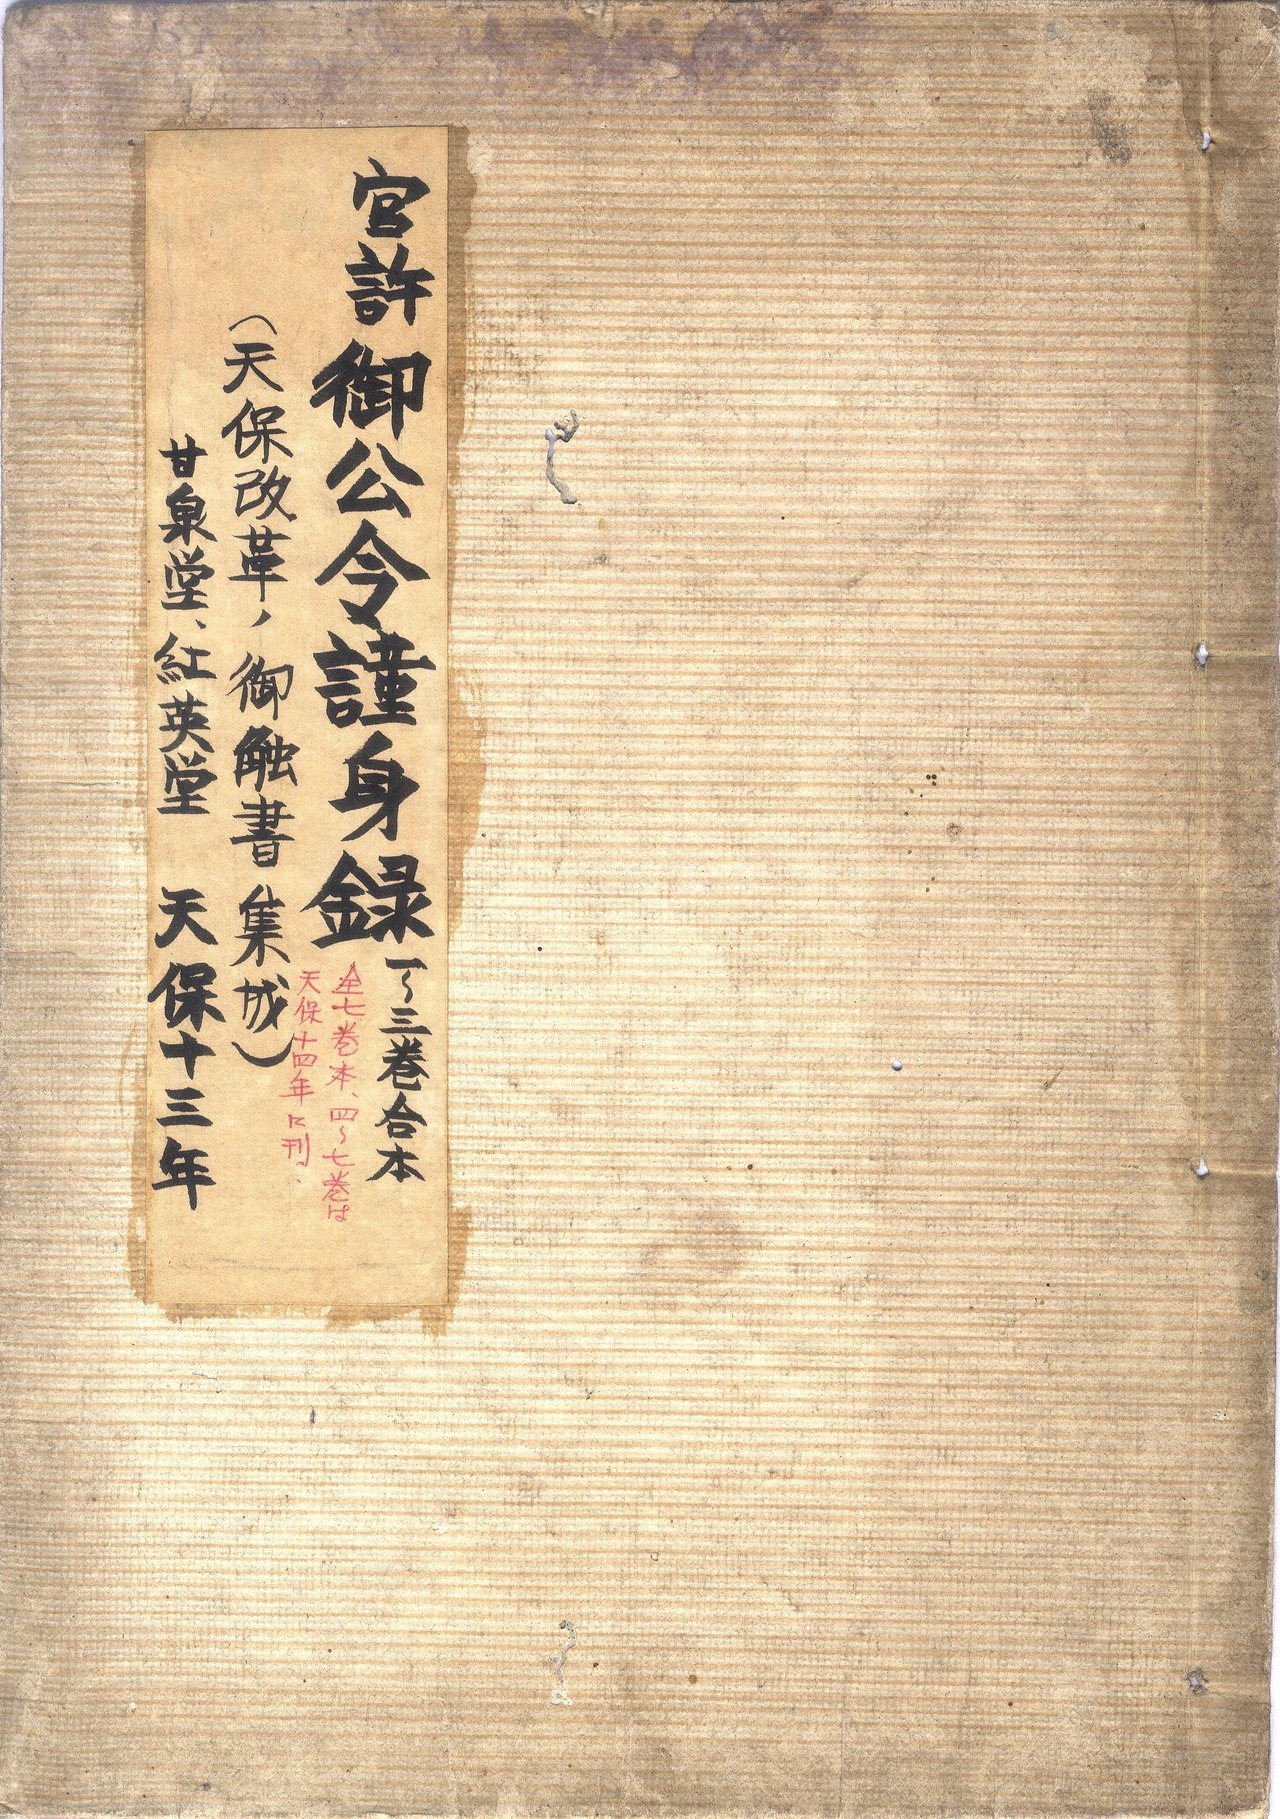 官許 御公令謹身録 一〜三巻合本
全七巻本、四〜七巻は
天保十四年に刊.
（天保改革ノ御触書集成）
甘泉堂、紅英堂 天保十三年